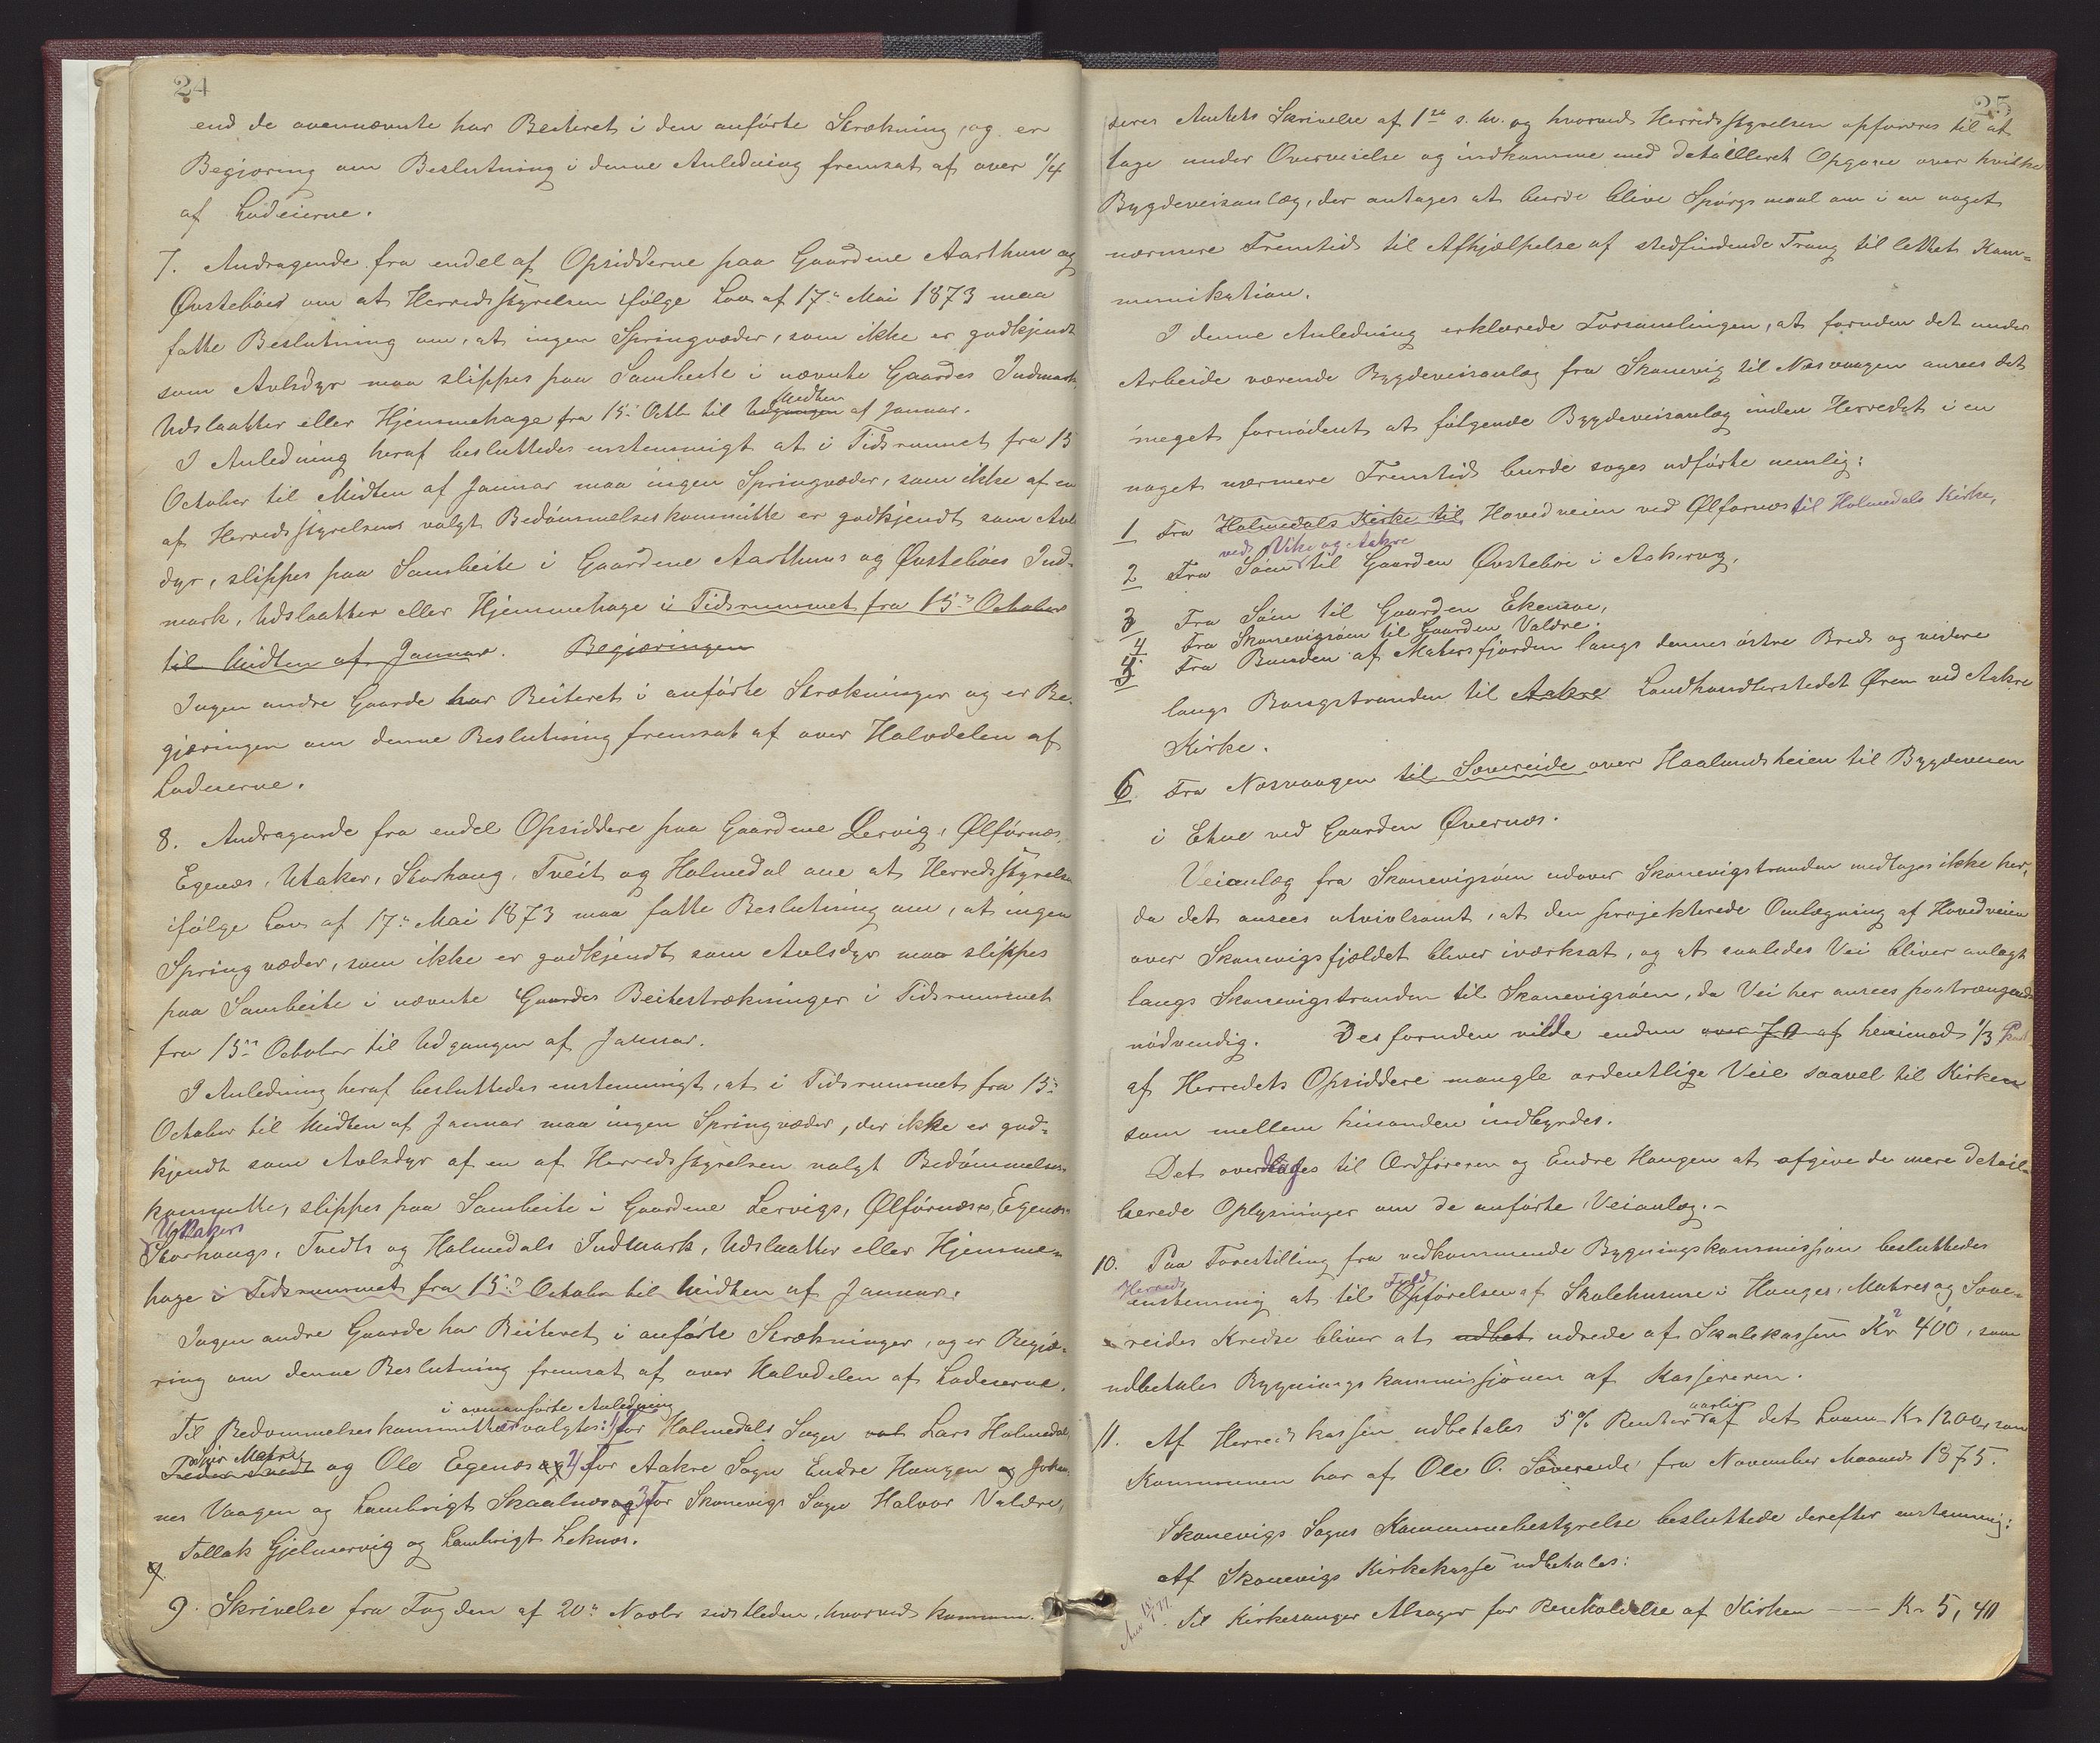 24
end de ovennævnte har Beiteret i den anførte Strækning, og er
Begjæring om Beslutning i denne Anledning fremsat af over 1/4
af Lodeierne.
7. Andragende fra endel af Opsidderne paa Gaardene Aarthun og
Øvstebøes om at Herredsstyrelsen ifølge Lov af 17de Mai 1873 maa
fatte Beslutning om, at ingen Springvæder, som ikke er godkjendt
som Avlsdyr maa slippes paa Sambeite i nævnte Gaardes Indmark,
Udslaatter eller Hjemmehage fra 15de Octb til Udgangen Midten af Januar.
I Anledning heraf besluttedes enstemmigt at i Tidsrummet fra 15
October til Midten af Januar maa ingen Springvæder, som ikke af en
af Herredsstyrelsens valgt Bedømmelseskommitte er godkjendt som Avls
dyr, slippes paa Sambeite i Gaardene Aarthuns og Øvstebøes Ind-
mark, Udslaatter eller Hjemmehage i Tidsrummet fra 15de October
til Midten af Januar. Begjæringen
Ingen andre Gaarde har Beiteret i anførte Strækninger og er Be-
gjæringen om denne Beslutning fremsat af over Halvdelen af
Lodeierne.
8. Andragende fra endel Opsiddere paa Gaardene Lervig, Ølførnæs,
Egenæs, Utaker, Storhaug, Tveit og Holmedal om at Herredsstyrelsen
ifølge Lov af 17de Mai 1873 maa fatte Beslutning om, at ingen
Springvæder, som ikke er godkjendt som Avlsdyr maa slippes
paa Sambeite i nævnte Gaardes Beitestrækninger i Tidsrummet
fra 15de October til Udgangen af Januar.
I Anledning heraf besluttedes enstemmigt, at i Tidsrummet fra 15de
October til Midten af Januar maa ingen Springvæder, der ikke er god-
kjendt som Avlsdyr af en af Herredsstyrelsen valgt Bedømmelses-
kommitte, slippes paa Sambeite i Gaardene Lervigs, Ølførnæses, Egenæs
Uttakers
Storhaugs, Tvedts og Holmedals Indmark, Udslaatter eller Hjemme-
hage i Tidsrummet fra 15de October til Midten af Januar.
Ingen andre Gaarde har Beiteret i anførte Strækninger, og er Begjæ-
ring om denne Beslutning fremsat af over Halvdelen af Lodeierne.
i ovenanførte Anledning
Til Bedømmelseskommitteer valgtes: 1) for Holmedals Sogn Lars Holmedal,
og Ole Egenæs 2) For Aakre Sogn Endre Haugen og Johan-
nes Vaagen og Lambrigt Skaalnæs og 3) for Skonevigs Sogn Halvor Valdre,
Tollak Gjelmervig og Lambrigt Leknæs.
9. Skrivelse fra Fogden af 20de Novbr sidstleden, hvorved kommu-
25
seres Amtets Skrivelse af 1ste s. M. og hvorved Herredsstyrelsen opfordres til at
tage under Overveielse og indkomme med detailleret Opgave over hvilke
Bygdeveisanlæg, der antages at burde blive Spørgsmaal om i en noget
nærmere Fremtid til Afhjælpelse af stedfindende Trang til lettet Kom-
munikation.
I denne Anledning erklærede Forsamlingen, at foruden det under
Arbeide værende Bygdeveisanlæg fra Skonevig til Næsvaagen ansees det
meget fornødent at følgende Bygdeveisanlæg inden Herredet i en
noget nærmere Fremtid burde søges udførte nemlig:
1 Fra Holmedals Kirke til Hovedveien ved Ølførnæs til Holmedals Kirke,
ved Vike og Aakre
2 Fra Søen til Gaarden Øvstebøe i Aakervig,
3 Fra Søen til Gaarden Ekenæs,
4 Fra Skonevigsøen til Gaarden Valdre.
5 Fra Bunden af Matersfjorden langs dennes østre Bred og videre
langs Bangstranden til Aakre Landhandlerstedet Øren ved Aakre
Kirke.
6 Fra Næsvaagen til Sævereide over Haalandsheien til Bygdeveien
i Etne ved Gaarden Øvernæs.
Veianlæg fra Skonevigsøen udover Skonevigstranden medtages ikke her,
da det ansees utvivlsomt, at den projekterede Omlægning af Hovedveien
over Skonevigsfjældet bliver iværksat, og at saaledes Vei bliver anlagt
langs Skonevigstranden til Skonevigsøen, da Vei her ansees paatrængende
nødvendig. Desforuden vilde endnu henimod 1/3
af Herredets Opsiddere mangle ordentlige Veie saavel til Kirken
som mellem hinanden indbyrdes.
Det overdrages til Ordføreren og Endre Haugen at afgive de mere detail-
lerede Oplysninger om de anførte Veianlæg.-
10. Paa Forestilling fra vedkommende Bygningskommission besluttedes
Herreds
enstemmig at til Opførelsen af Skolehusene i Hauges, Matres og Sæve-
reides Kredse bliver at udbet udrede af Skolekassen Kr 400, som
udbetales Bygningskommissjonen af Kassereren.
11. Af Herredskassen udbetales 5% Renter aarlig af det Laan Kr 1200, som
Kommunen har af Ole O. Sævereide fra November Maaned 1875.
Skonevigs Sogns Kommunebestyrelse besluttede derefter enstemmig:
Af Skonevigs Kirkekasse udbetales:
Til Kirkesanger Alsager for Renholdelse af Kirken — Kr 5,40